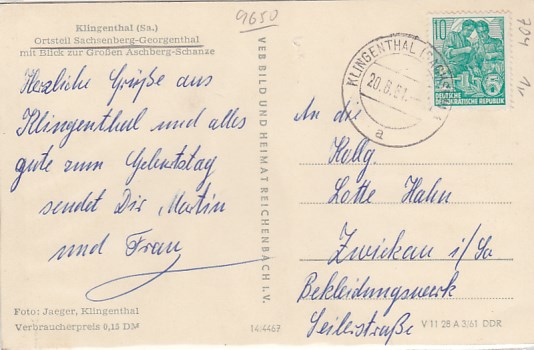 Klingenthal (Sa.)
Ortsteil Sachsenberg-Georgenthal
mit Blick zur Großen Aschberg-Schanze
9650
Herzliche Grüße aus
Klingenthal und alles
gute zum Geburtstag
sendet Dir Martin
und Frau
Foto: Jaeger, Klingenthal
Verbraucherpreis 0,15 DM
VEB BILD UND HEIMAT REICHENBACH I. V.
14/4467
KLINGENTHAL
20.6.61.
a
10
DEUTSCHE
DEMOKRATISCHE REPUBLIK
704
An die
Kollg.
Lotte Hahn
Zwickau i/Sa
Bekleidungswerk
Seilerstraße
V 11 28 A 3/61 DDR